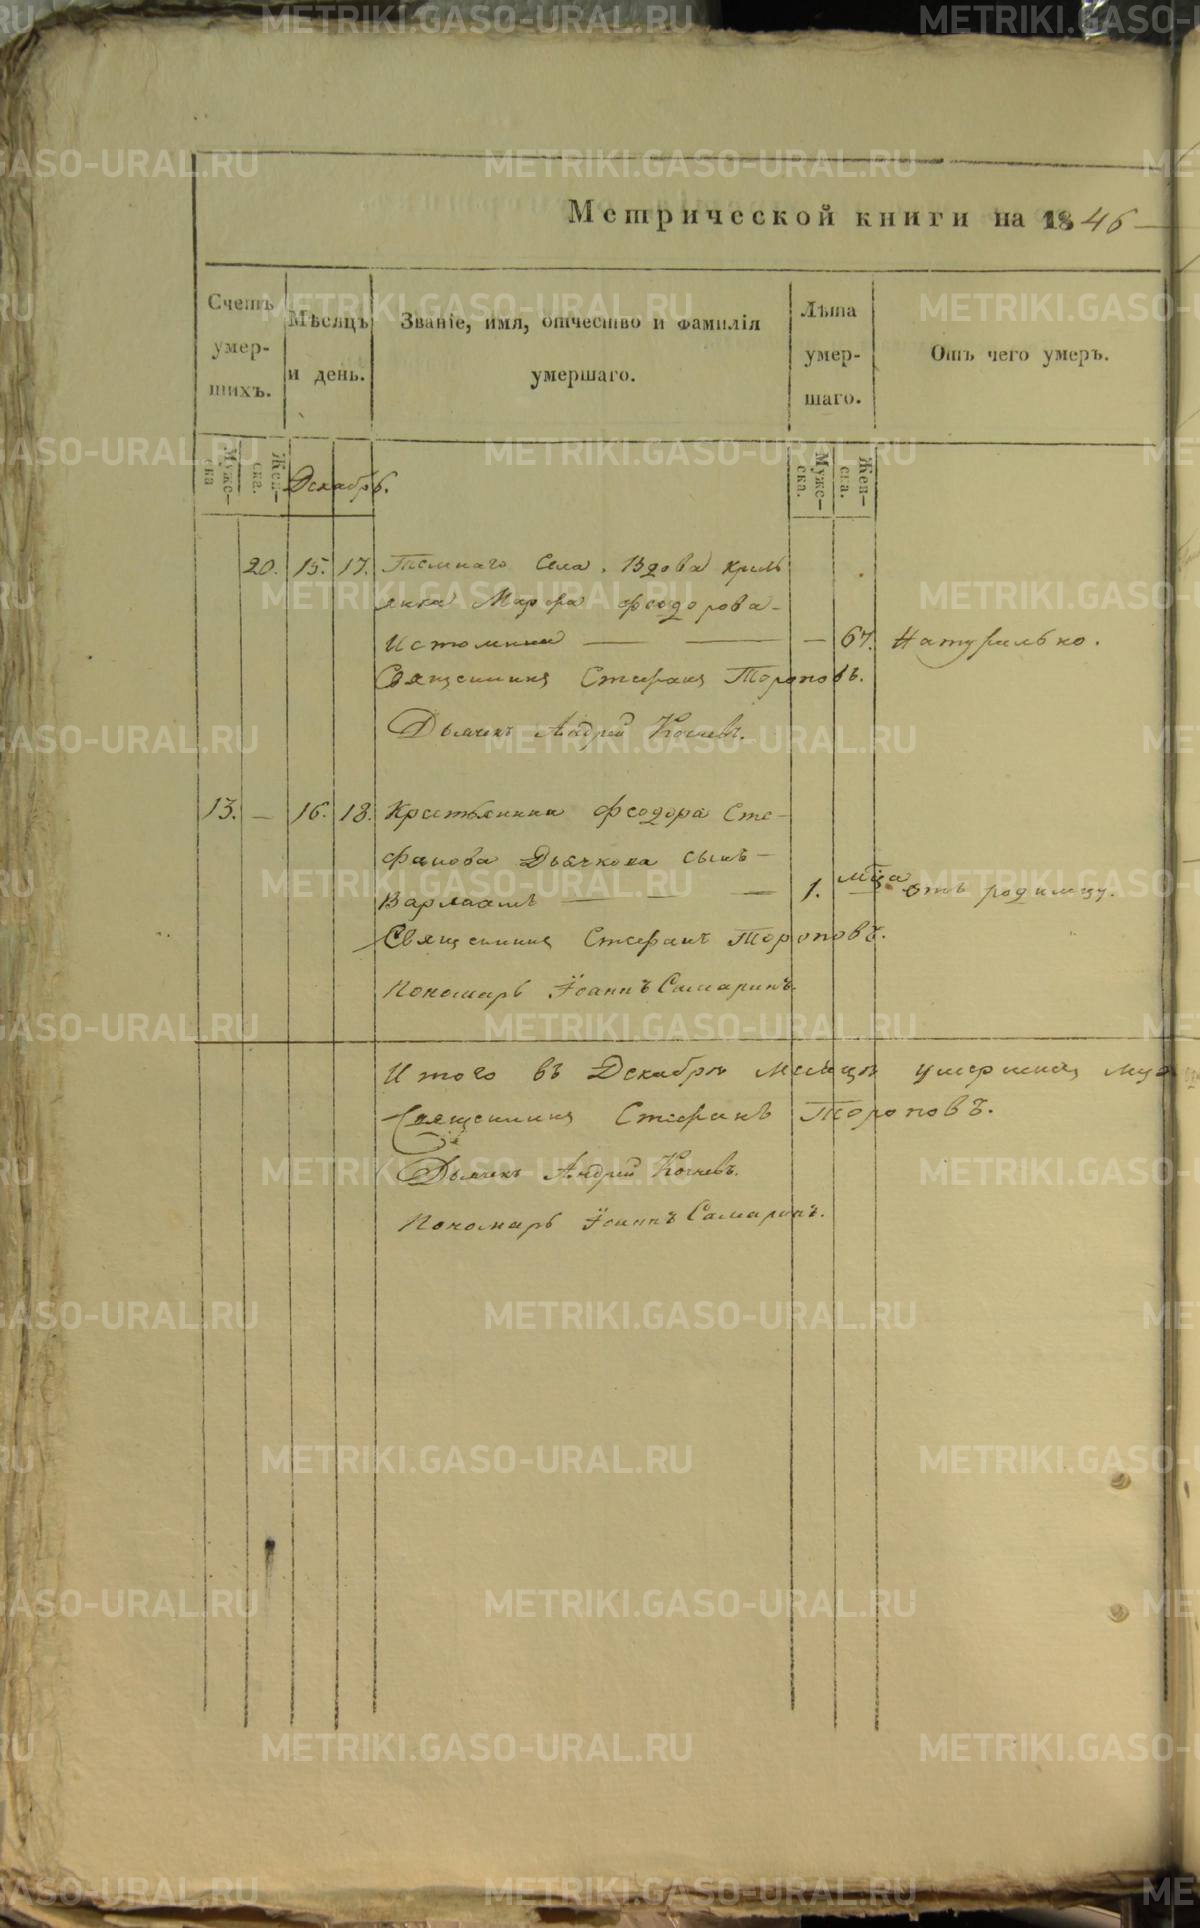 Метрической книги на 1846
Счетъ умер- шихъ.
Мѣсяцъ и день.
Званіе, имя, отчество и фамилія умершаго.
Лѣта умер- шаго.
Отъ чего умеръ.
Мужс- ска
Жен- ска.
Декабрь.
Мужс- ска.
Жен- ска.
20. 15. 17. села. Вдова
янка Марфа Феодорова
Истомина — — — 67. Натурально.
Священникъ Стефанъ Тороповъ.
Дьячекъ Андрей Кочневъ.
13. — 16. 18. Крестьянина Феодора Сте-
фанова Дьячкова сынъ —
Варлаамъ — — — 1. мца отъ родимцу.
Священникъ Стефанъ Тороповъ.
Пономарь Іоаннъ Самаринъ.
Итого въ Декабрѣ месяцѣ умершихъ муж
Священникъ Стефанъ Тороповъ.
Дьячекъ Андрей Кочневъ.
Пономарь Іоаннъ Самаринъ.
METRIKI.GASO-URAL.RU